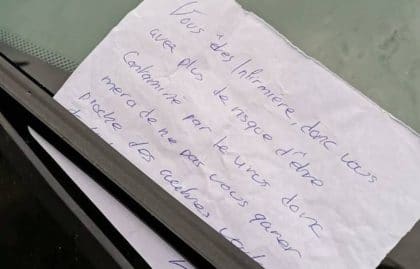 Vous êtes Infirmière, donc vous
avez plus de risque d'être
Contaminé par le virus donc
merci de ne pas vous garer
proche des autres